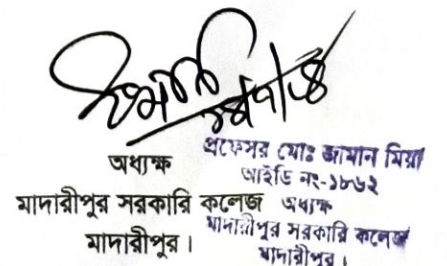 অধ্যক্ষ
মাদারীপুর সরকারি কলেজ
মাদারীপুর।
প্রফেসর মোঃ জামান মিয়া
আইডি নং-১৮৬২
অধ্যক্ষ
মাদারীপুর সরকারি কলেজ
মাদারীপুর।